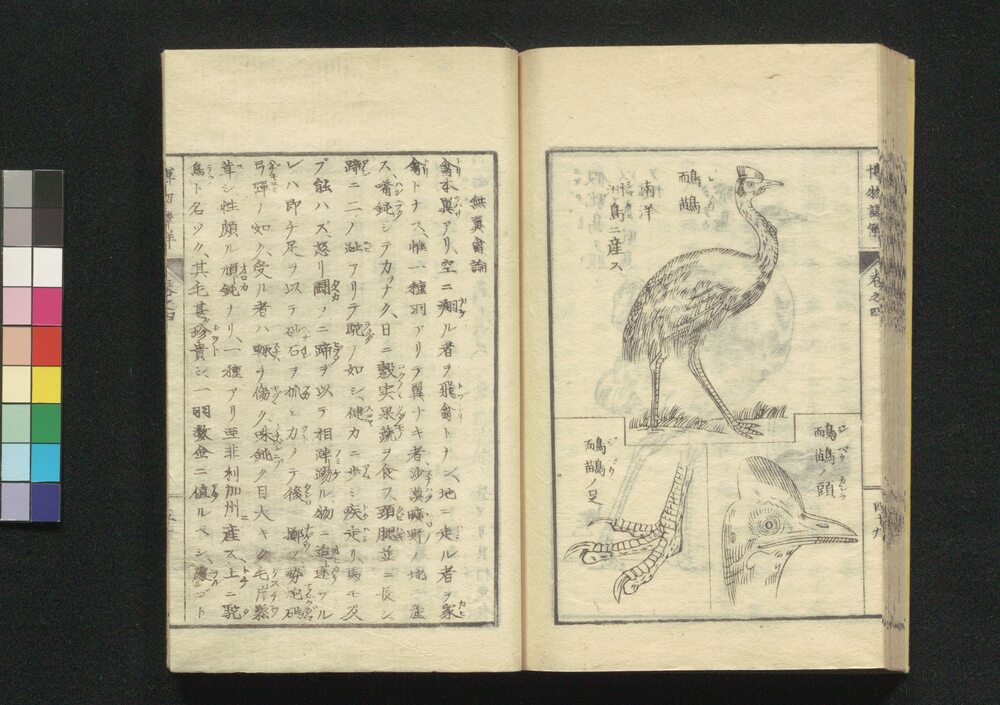 博物語彙
巻之四
鴯鶓
南洋
州島ニ産ス
鴯鶓ノ頭
鴯鶓ノ足
無翼禽論
禽本翼アリ、空ニ翔ル者ヲ飛禽トナシ、地ニ走ル者ヲ家
禽トナス、惟一種羽アリ翼ナキ者沙漠曠野ノ地ニ産
ス、嘴鈍シテ力ナク、日ニ穀実果蔬ヲ食フ、頸腿並ニ長シ
蹄ニ二ノ趾アリテ駝ノ如シ、健カニ歩ミ疾走リ馬モ及
ブ能ハス、怒リ鬪フニ蹄ヲ以テ相踢ル物ニ追逐フル
レハ即チ足ヲ以テ砂石ヲ抓ミ力メテ後ニ擲ツ勢砲碼
弓弾ノ如ク、受ル者ハ輙チ傷ク、味鈍ク目大キク毛岸懸
茸シ性頗ル頑鈍ナリ、一種アリ亜非利加州産ス、土ニ駝
鳥ト名ヅク、其毛甚珍貴シ、一羽数金ニ値ルベシ、